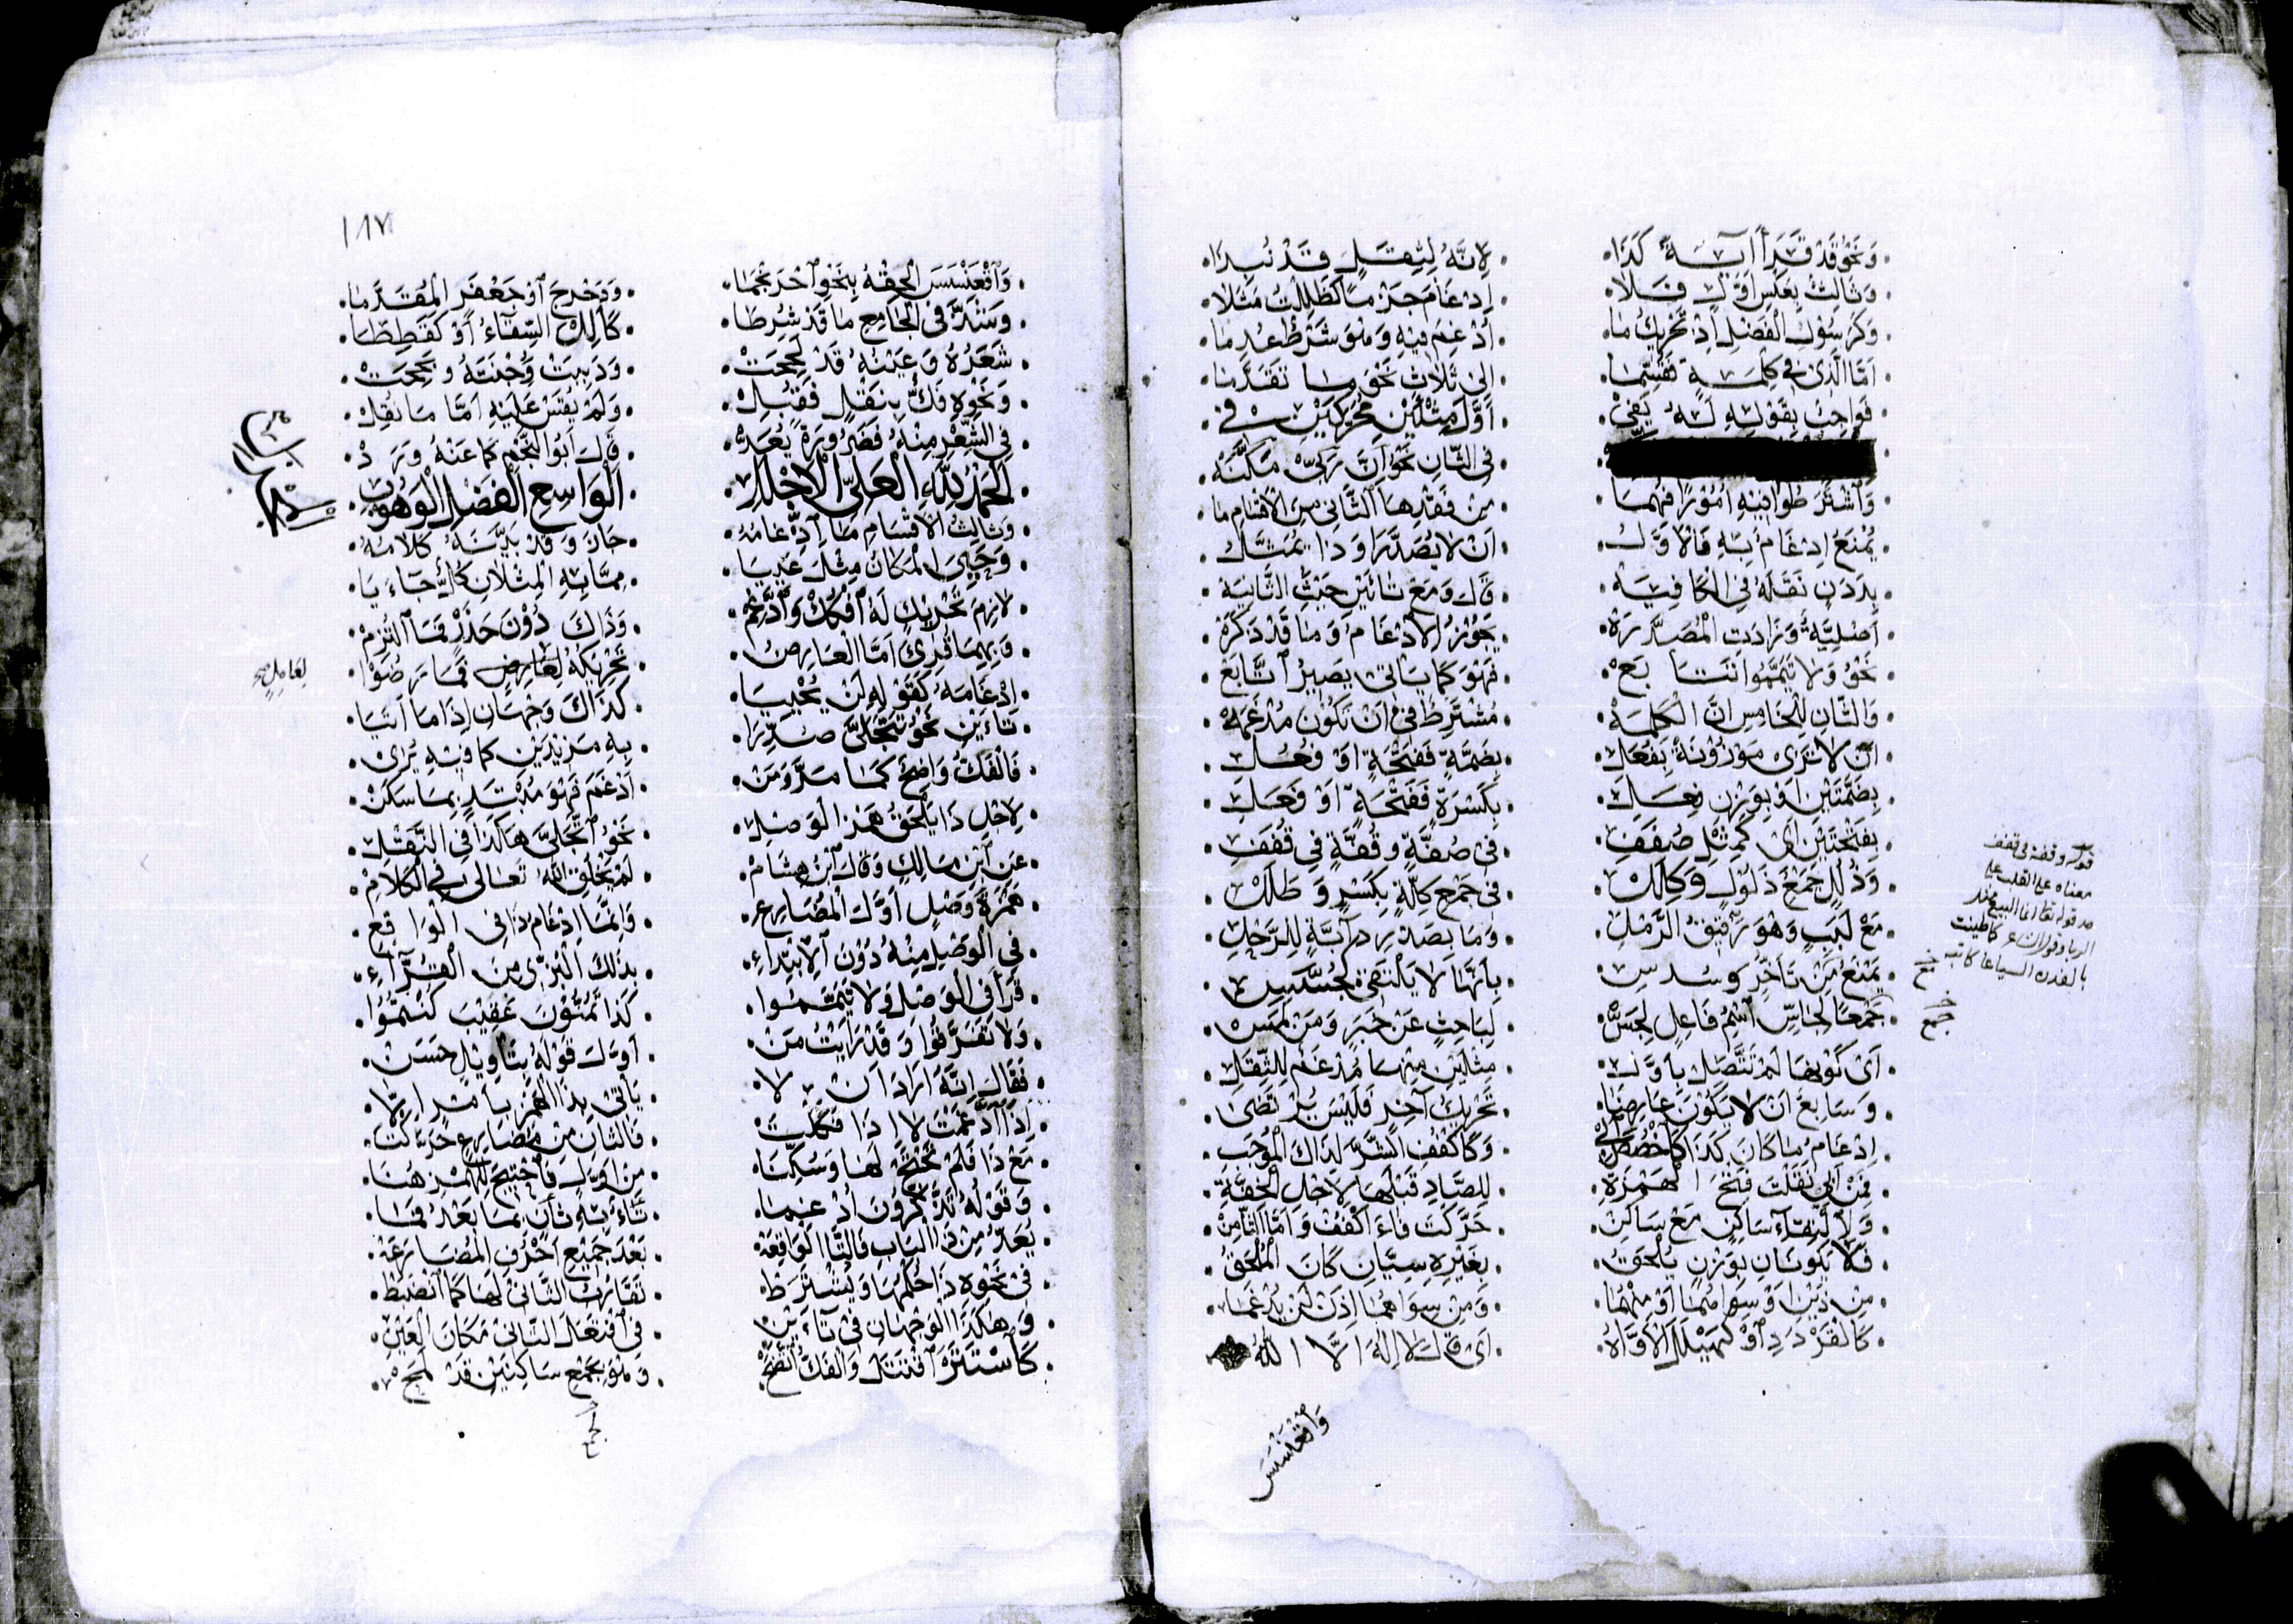 وَنَحْوُ قَدْ قَرَأَ آيَةً كَذَا . لِاَنَّهُ لِثِقَلٍ قَدْ نُبِذَا
وَثَالِثٌ بِعَكْسِ اَوَّلٍ فَلَا . اِدْغَامَ حَزْمًا كَظَلِلْتُ مَثَلَا
وَكَرَسُوْلِ الْفَضْلِ اِذْ تَحْرِيكُ مَا . اُدْغِمَ فِيْهِ وَهْوَ شَرْطٌ عُدِمَا
اَمَّا الَّذِى فِى كِلْمَةٍ فَقُسِّمَا . اِلَى ثَلَاثٍ نَحْوَ مَا تَقَدَّمَا
فَوَاجِبٌ بِقَوْلِهِ لَهُ يَفِىْ . اَوَّلَ مِثْلَيْنِ مُحَرَّكَيْنِ فِى
فِى الثَّانِ نَحْوُ اِنَّ رَبِّىْ مَكَّنَهْ
وَاشْتَرَطُوْا فِيْهِ اُمُوْرًا فَهُمَا . مِنْ فَقْدِهَا الثَّانِى مِنَ الْاَقْسَامِ مَا
يُمْنَعُ اِدْغَامٌ بِهِ فَالْاَوَّلُ . اَنْ لَا يُصَدَّرَا وَذَا يُمَثَّلُ
بِدَدَنٍ نَقَلَهُ فِى الْكَافِيَهْ . قَالَ وَمَعْ تَائَيْنِ حَيْثُ الثَّانِيَهْ
اَصْلِيَّةً وَزَادَتِ الْمُصَدَّرَهْ . يَجُوْزُ الْاِدْغَامُ وَمَا قَدْ ذَكَرَهْ
نَحْوُ وَلَا تَيَمَّمُوا . فَهْوَ كَمَا يَاْتِى بَصِيرٌ اتَّابَعْ
وَالثَّانِ لِلْخَامِسِ اَنَّ الْكَلِمَهْ . مُشْتَرَطٌ فِى اَنْ تَكُوْنَ مُدْغَمَهْ
اَنْ لَا تُرَى مَوْزُوْنَةً بِفُعَلِ . بِضَمَّةٍ فَفَتْحَةٍ اَوْ فُعُلِ
بِضَمَّتَيْنِ اَوْ بِوَزْنِ فِعَلِ . بِكَسْرَةٍ فَفَتْحَةٍ اَوْ فَعَلِ
بِفَتْحَتَيْنِ اَىْ كَمِثْلِ صُفَفِ . فِى صُفَّةٍ وَقُفَّةٍ فِى قُفَفِ
وَذُلُلٍ جَمْعِ ذَلُوْلٍ وَكِلَلْ . فِى جَمْعِ كِلَّةٍ بِكَسْرٍ وَطَلَلْ
مَعْ لَبَبٍ وَهْوَ رَقِيْقُ الرَّمْلِ . وَمَا بِصَدْرِ دَابَّةٍ لِلرَّحْلِ
يَمْنَعُ مَنْ تَاَخَّرَ وَسُدُسِ . بِاَنَّهَا لَا يَلْتَقِى كَجُسَّسِ
جَمْعًا لِجَاسٍّ اسْمُ فَاعِلٍ لِجَسّْ . لِبَاحِثٍ عَنْ خَبَرٍ وَمَنْ لَمَسْ
اَىْ كَوْنُهَا لَمْ تَتَّصِلْ بِاَوَّلِ . مِثْلَيْنِ مِنْهَا مُدْغَمٍ لِلثِّقَلِ
وَسَابِعٌ اَنْ لَا يَكُوْنَ عَارِضَا . تَحْرِيكُ آخِرٍ فَلَيْسَ يُرْتَضَى
اِدْغَامُ مَا كَانَ كَذَا كَاخْصُصَ اَبِى . وَكَاكْفُفِ الشَّرَّ لِذَاكَ الْمُوْجِبِ
فَمِنْ اَبِى نَقَلْتَ فَتْحَ الْهَمْزَةِ . لِلصَّادِ قَبْلَهَا لِاَجْلِ الْخِفَّةِ
وَلِالْتِقَاءِ سَاكِنٍ مَعْ سَاكِنْ . حَرَّكْتَ فَاءَ اكْفُفْ وَاَمَّا الثَّامِنْ
فَلَا يَكُوْنَانِ بِوَزْنٍ يُلْحَقُ . بِغَيْرِهِ سِيَّانِ كَانَ الْمُلْحَقُ
مِنْ ذَيْنِ اَوْ سِوَاهُمَا اَوْ مِنْهُمَا . وَمِنْ سِوَاهُمَا اِذَنْ لَنْ يُدْغَمَا
كَالْقَرْدَدِ اَوْ كَهَيْلَلَ الْاَوَّاهُ . اَىْ قَالَ لَا اِلٰهَ اِلَّا اللّٰهُ
وَاقْعَنْسَسَ
قوله وقفة فى قفف
معناه على القلب على
حد قوله تعالى انما البيع مثل
الربا وقول الشاعر كما طينت
بالفدن السياعا كاتبه
صح
١٨٧
وَاقْعَنْسَسَ الْحِقْهُ بِنَحْوِ احْرَنْجَمَا . وَدَحْرَجَ اَوْ جَعْفَرٍ الْمُقَدَّمَا
وَشَذَّ فِى الْجَامِعِ مَا قَدْ شُرِطَا . كَاَلِلَ السِّقَاءُ اَوْ كَقَطِطَا
شَعَرُهُ وَعَيْنُهُ قَدْ لَحِحَتْ . وَدَبِبَتْ وَجْنَتُهُ وَبَحِحَتْ
وَنَحْوِهِ فَكٌّ بِنَقْلٍ فَقُبِلْ . وَلَمْ يُقَسْ عَلَيْهِ اَمَّا مَا نُقِلْ
فِى الشِّعْرِ مِنْهُ فَضَرُوْرَةً يُعَدّْ . قَالَ اَبُو النَّجْمِ كَمَا عَنْهُ وَرَدْ
الْحَمْدُ لِلّٰهِ الْعَلِىِّ الْاَجْلَلِ . الْوَاسِعِ الْفَضْلِ الْوَهُوْبِ
وَثَالِثُ الْاَقْسَامِ مَا اِدْغَامُهُ . جَازَ وَقَدْ بَيَّنَهُ كَلَامُهُ
وَحَيِىَ الْمَكَانُ مِثْلَ عَيِيَا . مِمَّا بِهِ الْمِثْلَانِ كُلٌّ جَاءَ يَا
لَازِمَ تَحْرِيكٍ لَهُ افْكُكْ وَادَّغِمْ . وَذَاكَ دُوْنَ حَذَرٍ فَمَا الْتُزِمْ
وَبِهِمَا قُرِئَ اَمَّا الْعَارِضُ . تَحْرِيكُهُ لِعَارِضٍ فَمَا رَضُوْا
لِعَامِلٍ صح
اِدْغَامَهُ كَقَوْلِهِ لَنْ يُحْيِيَا . كَذَاكَ وَجْهَانِ اِذَا مَا اَتَيَا
تَاءَيْنِ نَحْوُ تَتَجَلَّى صُدِّرَا . بِهِ مَزِيْدَيْنِ كَمَا فِيْهِ يُرَى
فَالْفَكُّ وَاضِحٌ كَمَا مَرَّ وَمَنْ . اَدْغَمَ فَهْوَ مُبْتَدٍ بِمَا سَكَنْ
لِاَجْلِ ذَا يَلْحَقُ هَمْزُ الْوَصْلِ . نَحْوُ اتَّجَلَّى هَكَذَا فِى النَّقْلِ
عَنِ ابْنِ مَالِكٍ وَقَالَ ابْنُ هِشَامْ . لَمْ يَخْلُقِ اللّٰهُ تَعَالَى فِى الْكَلَامْ
هَمْزَةَ وَصْلٍ اَوَّلَ الْمُضَارِعِ . وَاِنَّمَا اِدْغَامُ ذَا فِى الْوَاقِعِ
فِى الْوَصْلِ مِنْهُ دُوْنَ الْاِبْتِدَاءِ . بِذَلِكَ الْبَزِّى مِنَ الْقُرَّاءِ
قَرَأَ فِى الْوَصْلِ وَلَا تَيَمَّمُوا . كَذَا تَمَنَّوْنَ عَقِيْبَ كُنْتُمُوا
وَلَا تَفَرَّقُوْا وَقَدْ رَاَيْتُ مَنْ . اَوَّلَ قَوْلَهُ بِتَاْوِيْلٍ حَسَنْ
فَقَالَ اِنَّهُ اَرَادَ اَنْ لَا . يَاْتِى بِذَا الْهَمْزِ
اِذَا اَدْغَمْتَ لَا اِذَا فَكَكْتَ . فَالثَّانِ مِنْ مُضَارِعٍ حَرَّكْتَ
مَعْ ذَا فَلَمْ تَحْتَجْ لَهَا وَسُكِّنَا . مِنْ اَوَّلٍ فَاحْتِيْجَ لِلْهَمْزِ هُنَا
وَقَوْلُهُ تَذَّكَّرُوْنَ اُدْغِمَا . تَاءٌ بِهِ ثَانٍ بِمَا بَعْدُ فَمَا
يُعَدُّ مِنْ ذَا الْبَابِ فَالتَّا الْوَاقِعَهْ . بَعْدَ جَمِيْعِ اَحْرُفِ الْمُضَارَعَهْ
فِى نَحْوِهِ ذَا حُكْمُهَا وَيُشْتَرَطْ . تَقَارُبُ الثَّانِى لَهَا كَمَا انْضَبَطْ
وَهَكَذَا الْوَجْهَانِ فِى تَاءَيْنِ . فِى افْتَعَلَ الثَّانِى مَكَانَ الْعَيْنِ
كَاسْتَتَرَ اقْتَتَلَ وَالْفَكُّ اتَّضَحْ . وَهْوَ بِجَمْعِ سَاكِنَيْنِ قَدْ